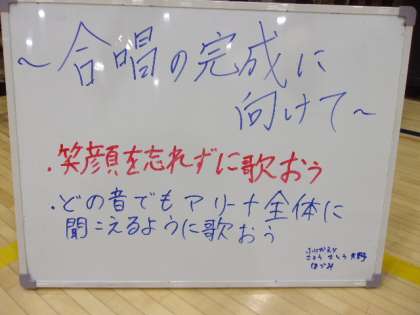 ～合唱の完成に
向けて～
・笑顔を忘れずに歌おう
・どの音でもアリーナ全体に
聞こえるように歌おう